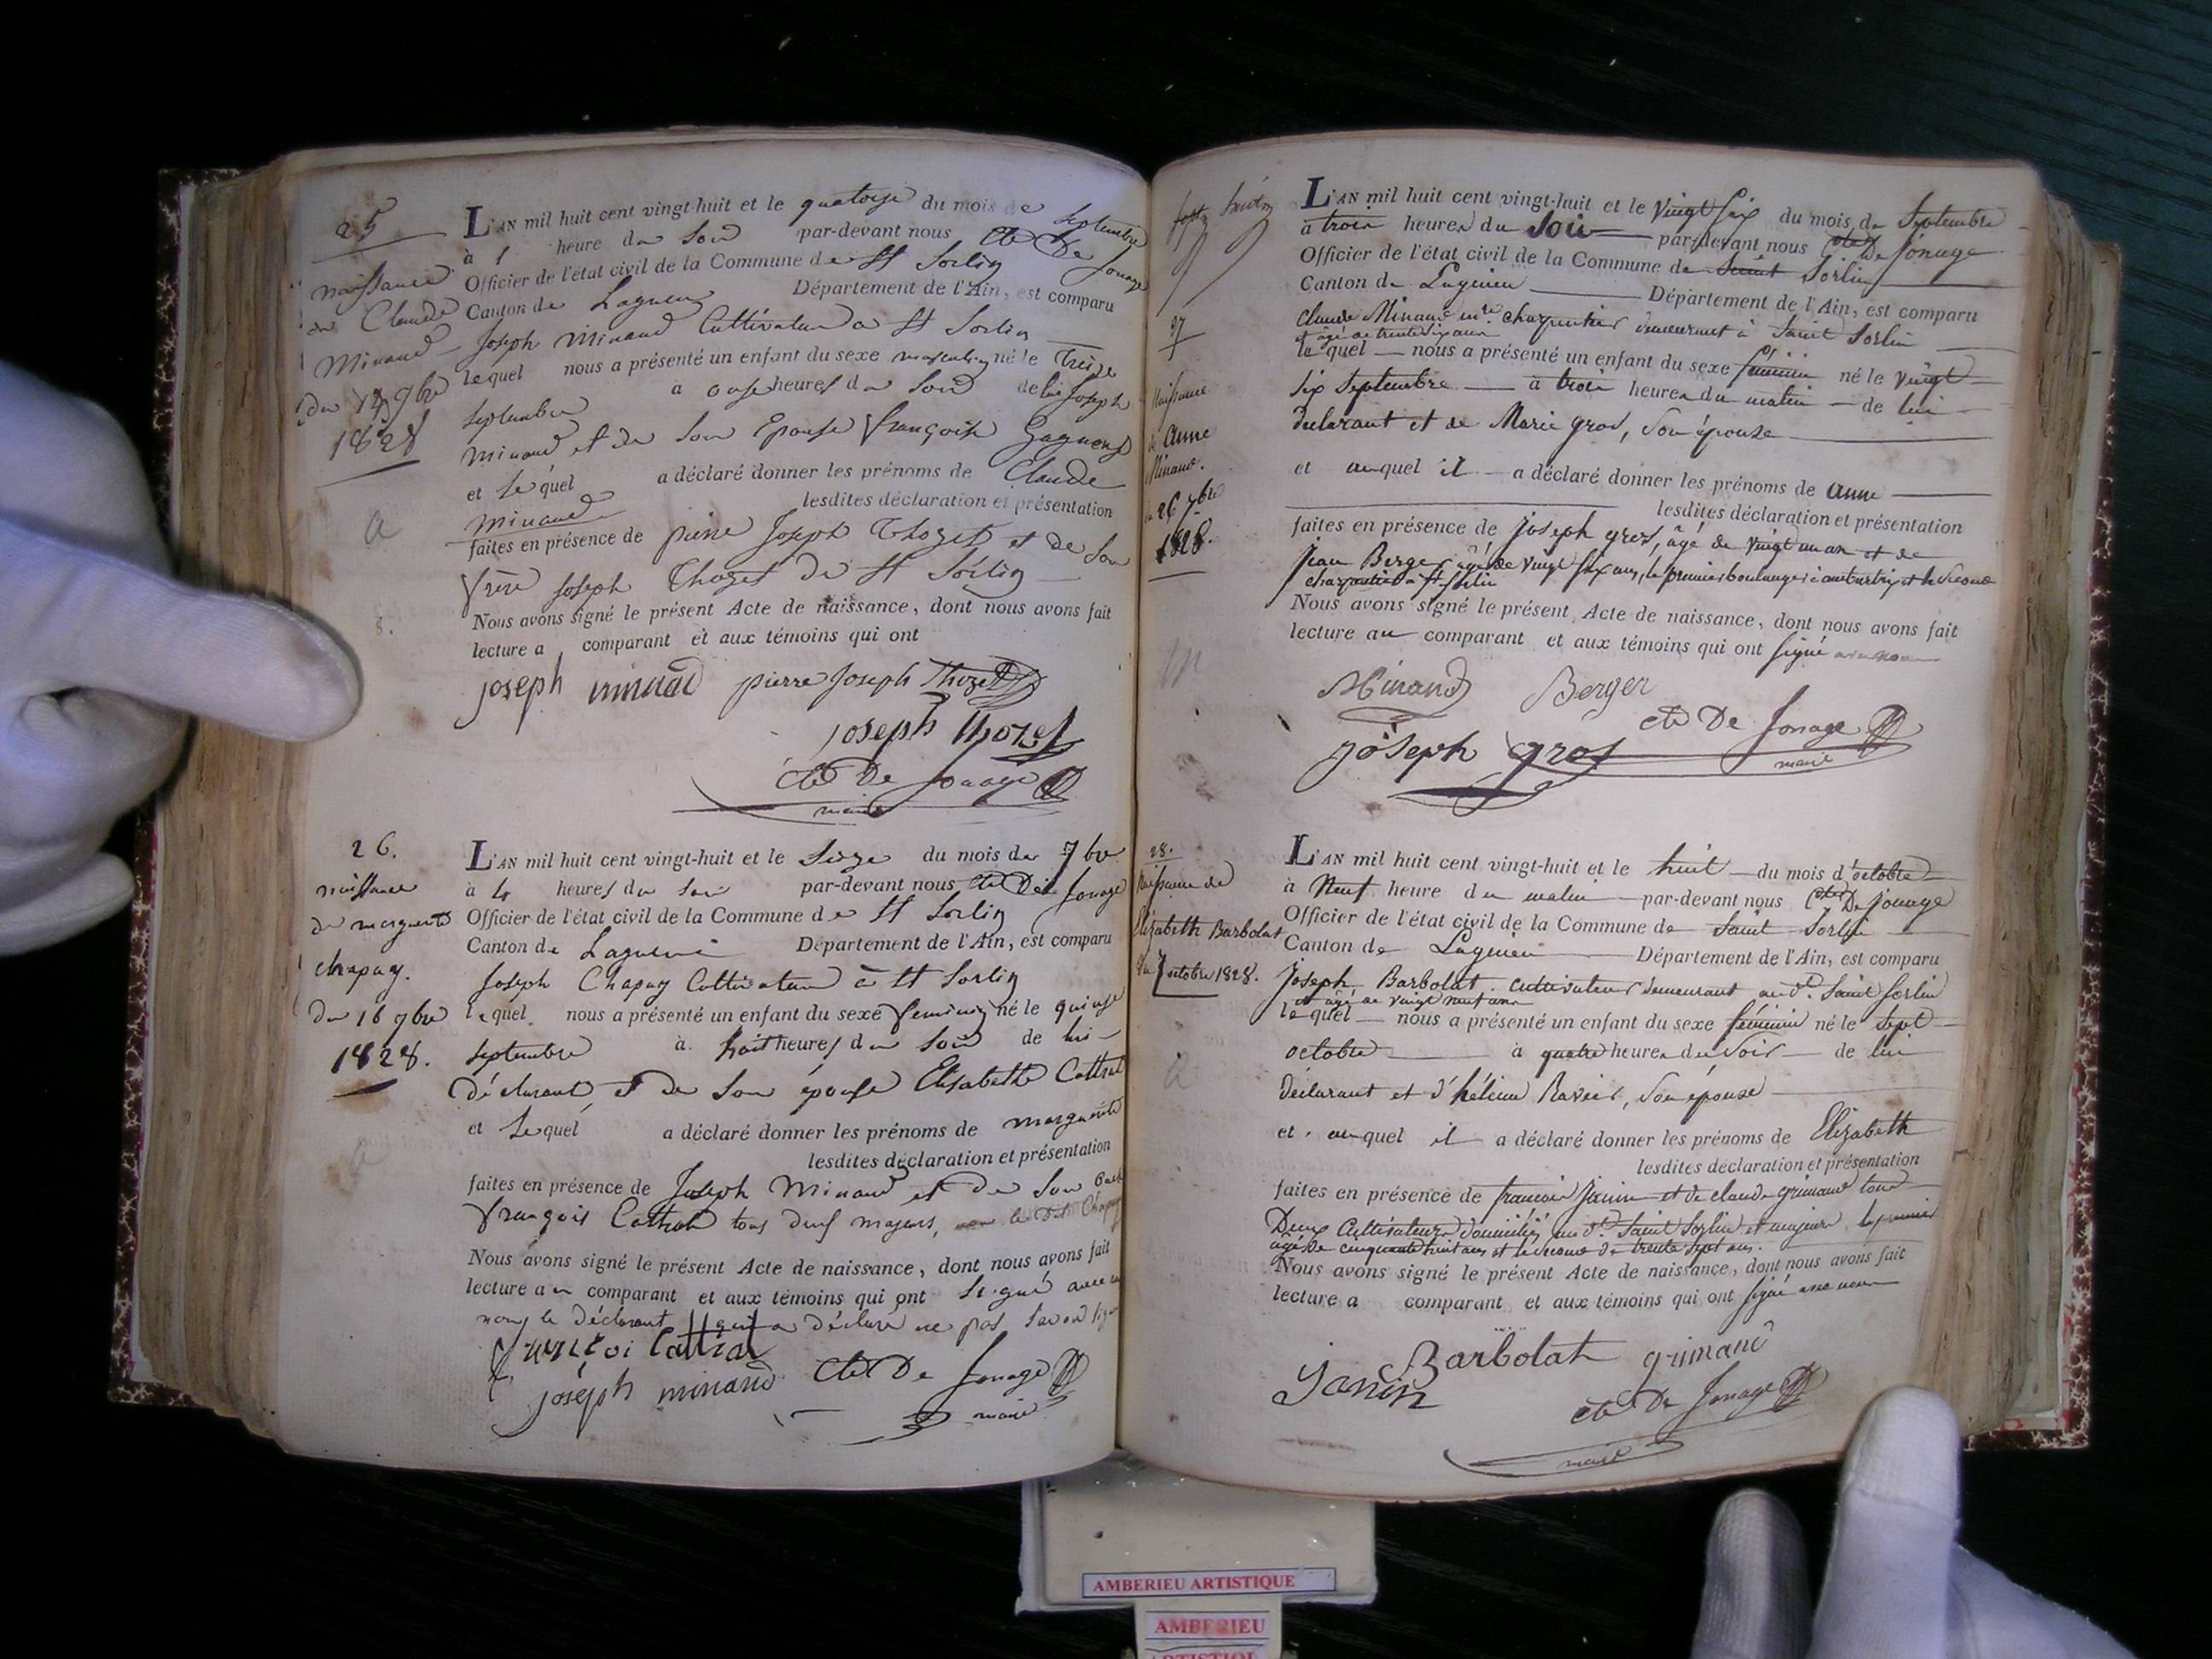 25
naissance
de Claude
Minand
du 14 7bre
1828
L'AN mil huit cent vingt-huit et le quatorze du mois de Septembre
à 1 heure du Soir par-devant nous Cte De Jonage
Officier de l'état civil de la Commune de St Sorlin
Canton de Lagnieu Département de l'Ain, est comparu
Joseph Minand Cultivateur a St Sorlin
lequel nous a présenté un enfant du sexe masculin né le Treize
Septembre à onze heures du Soir de lui Joseph
Minand et de Son Epouse françoise Gagneux
et Lequel a déclaré donner les prénoms de Claude
Minand lesdites déclaration et présentation
faites en présence de pierre Joseph Thozet et de Son
frère Joseph Thozet de St Sorlin
Nous avons signé le présent Acte de naissance, dont nous avons fait
lecture a comparant et aux témoins qui ont
joseph minad pierre Joseph Thozet
joseph thozet
Cte De Jonage
maire
26.
naissance
de marguerite
chapuy.
du 16 7bre
1828.
L'AN mil huit cent vingt-huit et le Seize du mois de 7bre
à 4 heures du Soir par-devant nous Cte De Jonage
Officier de l'état civil de la Commune de St Sorlin
Canton de Lagnieu Département de l'Ain, est comparu
Joseph Chapuy Cultivateur à St Sorlin
lequel nous a présenté un enfant du sexe feminin né le quinze
Septembre à huit heures du Soir de lui
déclarant et de Son épouse Elisabeth Cottrat
et Lequel a déclaré donner les prénoms de marguerite
lesdites déclaration et présentation
faites en présence de Joseph Minand et de Son
françois Cottrat tous deux majeurs, le Dit Chapuy
Nous avons signé le présent Acte de naissance, dont nous avons fait
lecture au comparant et aux témoins qui ont Signé avec
nous le déclarant qui a déclaré ne pas Savoir signer
joseph minand Cte De Jonage
maire
27
Naissance
de Anne
Minand.
du 26 7bre
1828.
L'AN mil huit cent vingt-huit et le vingt Six du mois de Septembre
à trois heures du Soir par-devant nous Cte De Jonage
Officier de l'état civil de la Commune de Saint Sorlin
Canton de Lagnieu Département de l'Ain, est comparu
claude Minand me charpentier demeurant à Saint Sorlin
et âgé de trente six ans
lequel nous a présenté un enfant du sexe féminin né le vingt
six Septembre à trois heures du matin de lui
declarant et de Marie gros, Son épouse
et auquel il a déclaré donner les prénoms de anne
lesdites déclaration et présentation
faites en présence de joseph gros, âgé de vingt un an et de
jean Berger âgé de vingt six ans, le premier boulanger et le Second
charpentier à St Sorlin
Nous avons signé le présent Acte de naissance, dont nous avons fait
lecture au comparant et aux témoins qui ont signé avec nous
Minand Berger
Cte De Jonage
joseph gros
maire
28.
Naissance de
Elizabeth Barbolat
du 7 octobre 1828.
L'AN mil huit cent vingt-huit et le huit du mois d'octobre
à Neuf heure du matin par-devant nous Cte De jonage
Officier de l'état civil de la Commune de Saint Sorlin
Canton de Lagnieu Département de l'Ain, est comparu
joseph Barbolat cultivateur demeurant au d. Saint Sorlin
et âgé de vingt neuf ans
lequel nous a présenté un enfant du sexe féminin né le Sept
octobre à quatre heures du Soir de lui
déclarant et d'hélène Ravier, Son épouse
et auquel il a déclaré donner les prénoms de Elizabeth
lesdites declaration et présentation
faites en présence de françois Janin et de claude grimand tous
Deux Cultivateurs domiciliés au d. Saint Sorlin et majeurs le premier
âgé de cinquante huit ans et le Second de trente Sept ans.
Nous avons signé le présent Acte de naissance, dont nous avons fait
lecture a comparant et aux témoins qui ont signé avec nous
Barbolat grimand
Janin
Cte De Jonage
maire
AMBERIEU ARTISTIQUE
AMBERIEU
ARTISTIQUE